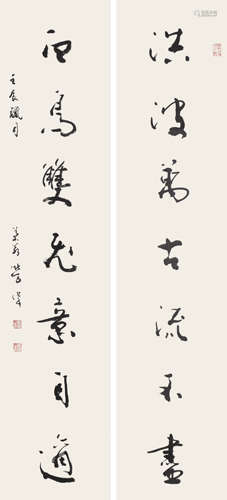 洪波萬古流不盡
白鳥雙飛意自適
壬辰臘月